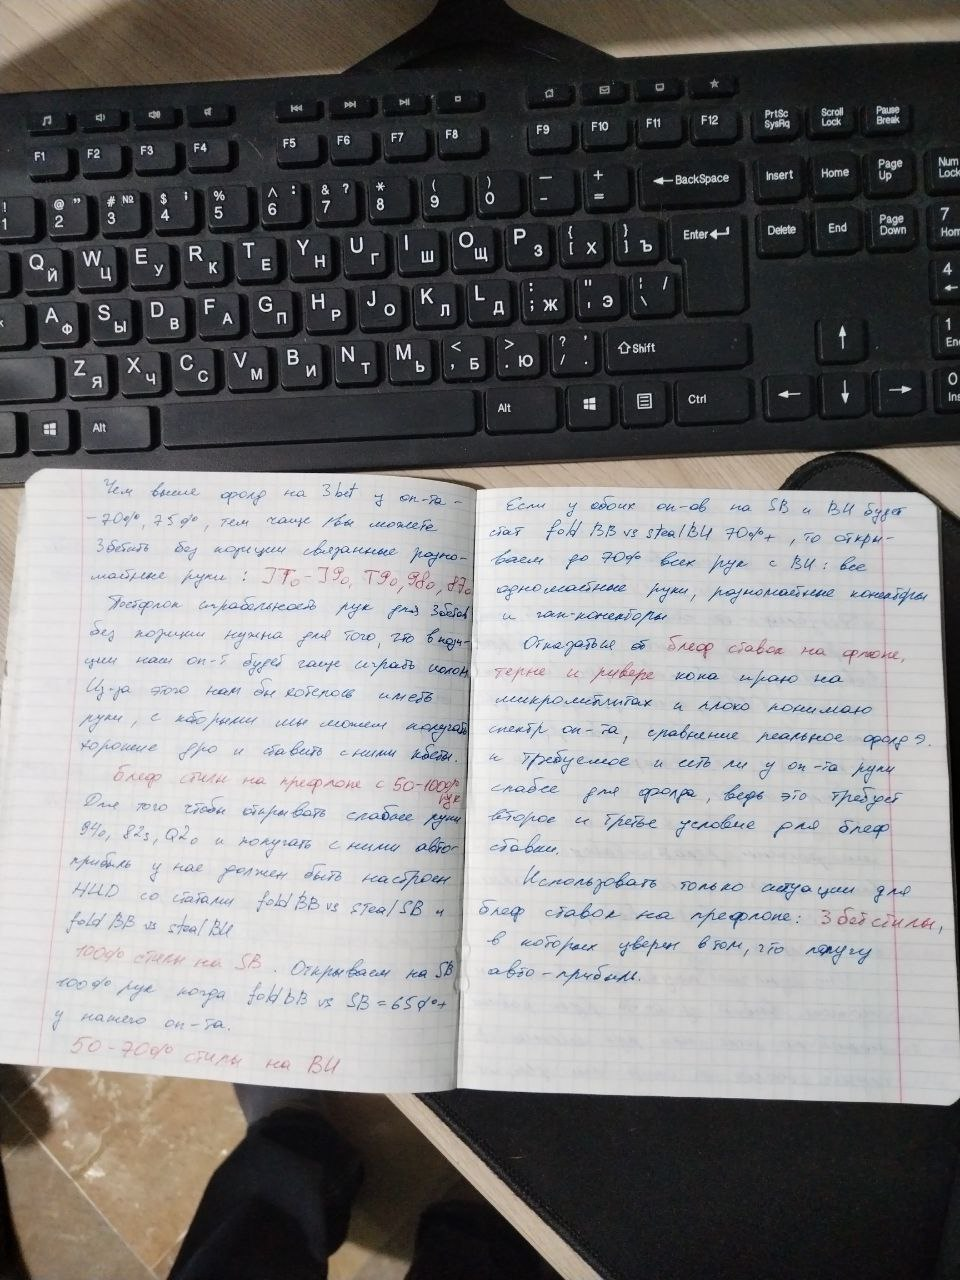 F1 F2 F3 F4 F5 F6 F7 F8 F9 F10 F11 F12 PrtSc SysRq Scroll Lock Pause Break
! 1 @ " 2 # № 3 $ ; 4 % 5 ^ : 6 & ? 7 * 8 ( 9 ) 0 — - + = BackSpace Insert Home Page Up Num Lock
Q Й W Ц E У R К T Е Y Н U Г I Ш O Щ P З { [ Х } ] Ъ Enter Delete End Page Down 7 Hom
A Ф S Ы D В F А G П H Р J О K Л L Д : ; Ж " ' Э | / \ 4
Z Я X Ч C С V М B И N Т M Ь < , Б > . Ю ? , / . Shift 1 En
Alt Alt Ctrl 0 Ins
Чем выше фолд на 3bet у оп-та -
- 70%, 75%, тем чаще мы можете
3бетить без позиции связанные разно-
мастные руки: JTo-J9o, T9o, 98o, 87o
Постфлоп играбельность рук для 3бетов
без позиции нужна для того, что в пози-
ции наш оп-т будет чаще играть колом
Из-за этого нам бы хотелось иметь
руки, с которыми мы можем получать
хорошие дро и ставить с ними кбеты.
Блеф стилы на префлопе с 50-100% рук
Для того чтобы открывать слабые руки
94o, 82s, Q2o и получать с ними авто-
прибыль у нас должен быть настроен
HUD со статами fold BB vs steal SB и
fold BB vs steal BU
100% стилы на SB. Открываем на SB
100% рук когда fold bb vs SB = 65%+
у нашего оп-та.
50-70% стилы на BU
Если у обоих оп-ов на SB и BU будет
стат fold BB vs steal BU 70%+, то откры-
ваем до 70% всех рук с BU: все
одномастные руки, разномастные конекторы
и гап-конекторы
Отказаться от блеф ставок на флопе,
терне и ривере пока играю на
микролимитах и плохо понимаю
спектр оп-та, сравнение реальное фолд э.
и требуемое, и есть ли у оп-та руки
слабее для фолда, ведь это требует
второе и третье условие для блеф
ставки.
Использовать только ситуации для
блеф ставок на префлопе: 3бет стилы,
в которых уверен в том, что получу
авто-прибыль.